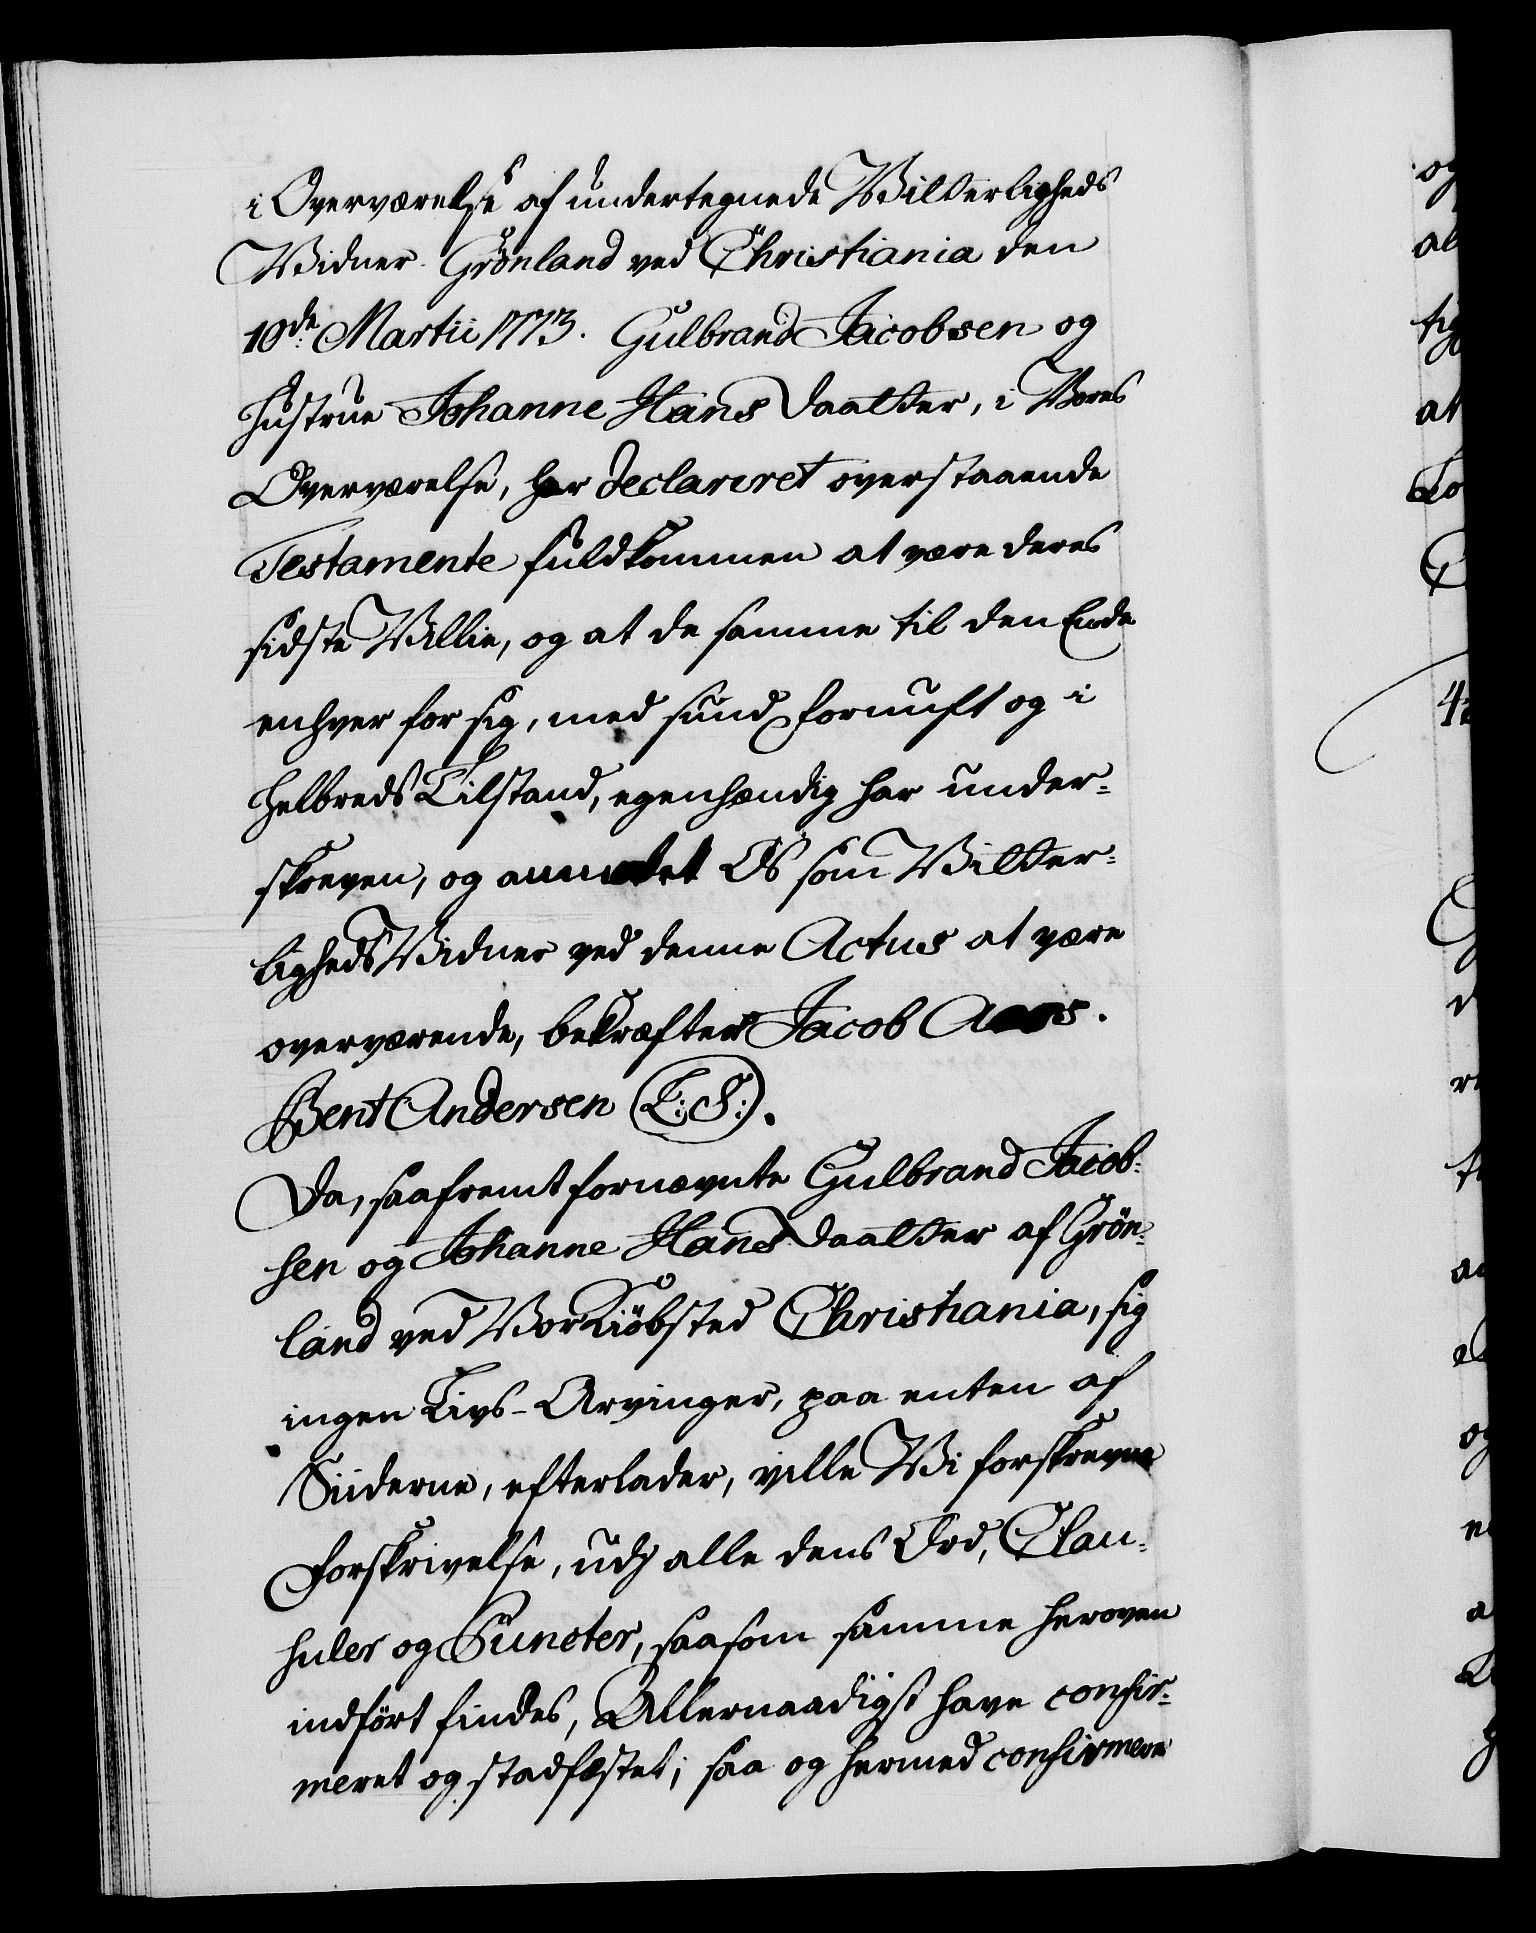 i Overværelse af undertegnede Vitterligheds
Vidner. Grönland ved Christiania den
10de Martii 1773. Gulbrand Jacobsen og
Hustrue Johanne Hans Daatter, i Vores
Overværelse, har declareret overstaaende
Testamente fuldkommen at være deres
sidste Villie, og at de samme til den Ende
enhver for sig, med sund Fornuft og i
Helbreds Tilstand, egenhændig har under-
skreven, og anmodet Os som Vitter-
ligheds Vidner ved denne Actus at være
overværende, bekræfter Jacob
Bent Andersen (L:S:).
Da, saafremt fornævnte Gulbrand Jacob-
sen og Johanne Hans Daatter af Grön-
land ved Vor Kiöbsted Christiania, sig
ingen Livs-Arvinger, paa enten af
Siiderne, efterlader, ville Vi forskrevne
Forskrivelse, udj alle dens Ord, Clau-
suler og Puncter, saasom samme heroven
indfört findes, Allernaadigst have confir-
meret og stadfæstet; saa og hermed confirmere
og
al
tig
at